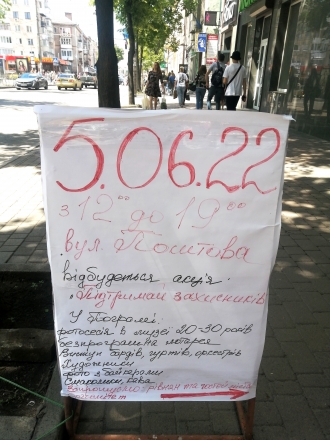 5.06.22
з 12⁰⁰ до 19⁰⁰
вул. Поштова
відбудеться акція
"Підтримай захисників
У Програмі:
фотосесія в музеї 20-30 років
безпрограшна лотерея
Виступ бардів, гуртів, оркестрів
Художники
фото з байкерами
Смаколики, кава